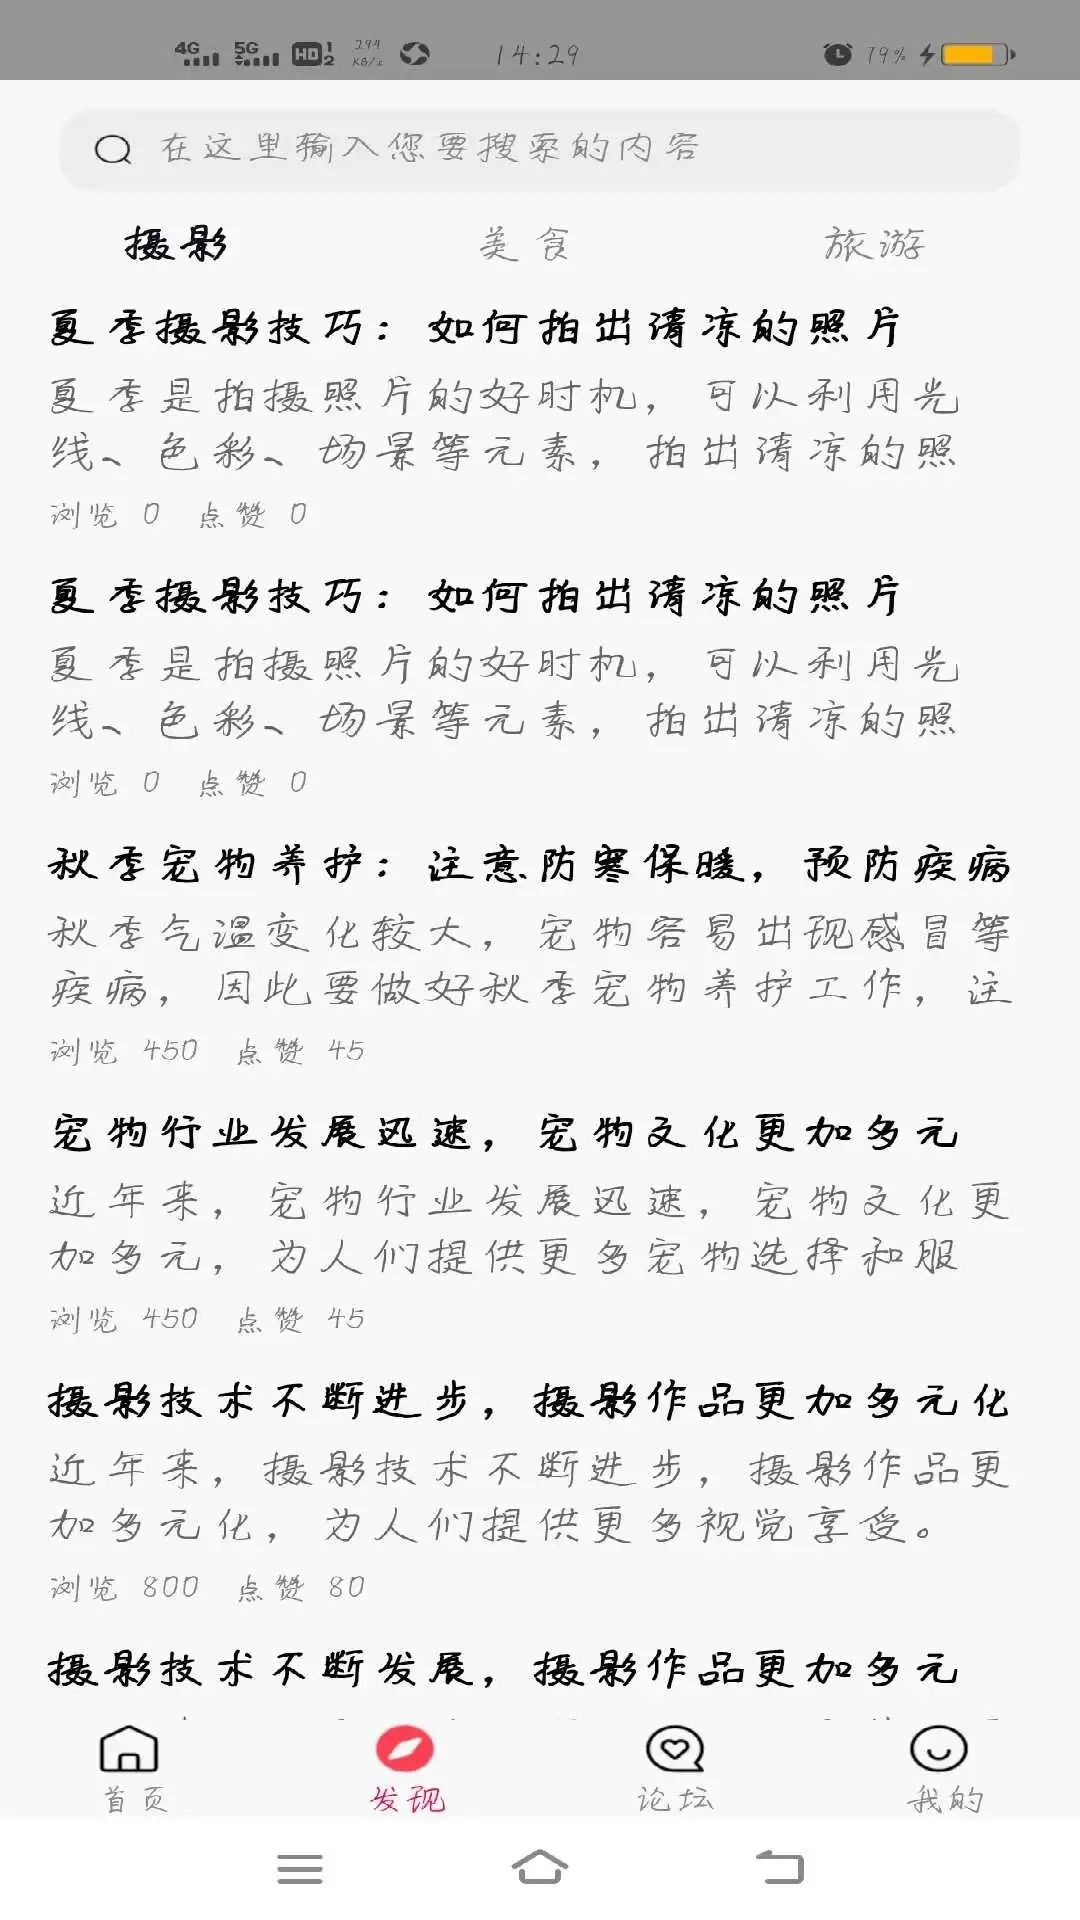 4G 5G HD 1 2 294 KB/s 14:29 79%
在这里输入您要搜索的内容
摄影 美食 旅游
夏季摄影技巧：如何拍出清凉的照片
夏季是拍摄照片的好时机，可以利用光
线、色彩、场景等元素，拍出清凉的照
浏览 0 点赞 0
夏季摄影技巧：如何拍出清凉的照片
夏季是拍摄照片的好时机，可以利用光
线、色彩、场景等元素，拍出清凉的照
浏览 0 点赞 0
秋季宠物养护：注意防寒保暖，预防疾病
秋季气温变化较大，宠物容易出现感冒等
疾病，因此要做好秋季宠物养护工作，注
浏览 450 点赞 45
宠物行业发展迅速，宠物文化更加多元
近年来，宠物行业发展迅速，宠物文化更
加多元，为人们提供更多宠物选择和服
浏览 450 点赞 45
摄影技术不断进步，摄影作品更加多元化
近年来，摄影技术不断进步，摄影作品更
加多元化，为人们提供更多视觉享受。
浏览 800 点赞 80
摄影技术不断发展，摄影作品更加多元
首页 发现 论坛 我的